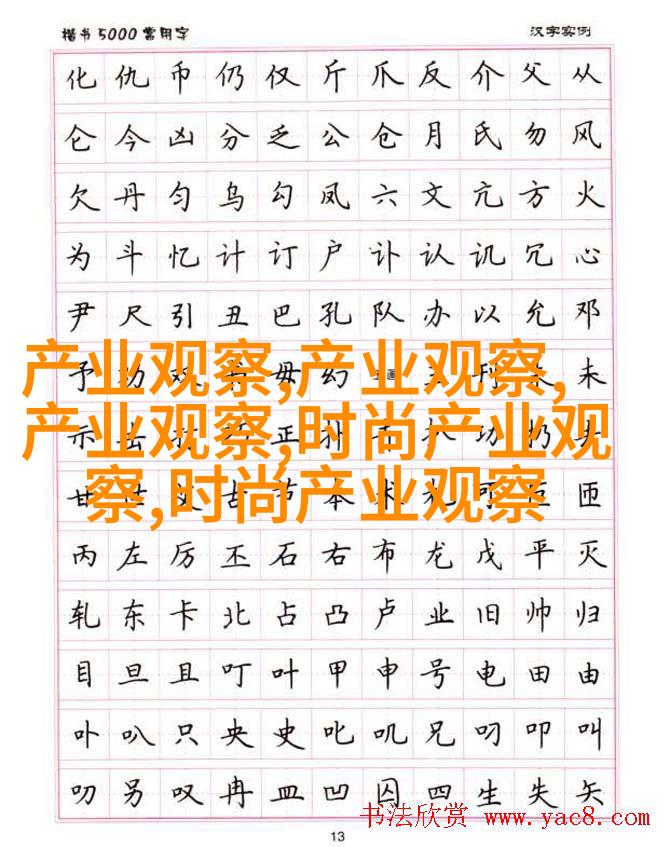 楷书5000常用字 汉字实例
化仇币仍仅斤爪反介父从
仑今凶分乏公仓月氏勿风
欠丹匀乌勾凤六文亢方火
为斗忆计订户讣认讥冗心
尹尺引丑巴孔队办以允邓
产业观察,产业观察,
予 毋幻 刊 未
产业观察,时尚产业观
示 正扑 扒功扔
察,时尚产业观察
甘 古节本术札可 匝
丙左厉丕石右布龙戊平灭
轧东卡北占凸卢业旧帅归
目旦且叮叶甲申号电田由
卟叭只央史叱叽兄叼叩叫
叨另叹冉皿凹囚四生失矢
书法欣赏 www.yac8.com
13